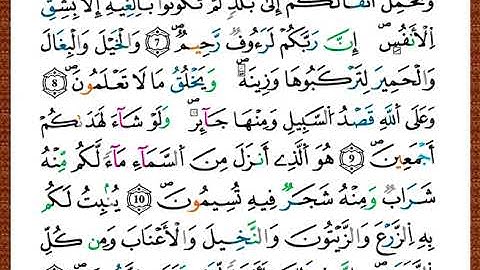 وَتَحْمِلُ أَثْقَالَكُمْ إِلَىٰ بَلَدٍ لَّمْ تَكُونُوا۟ بَٰلِغِيهِ إِلَّا بِشِقِّ
اِ۬لْأَنفُسِۖ إِنَّ رَبَّكُمْ لَرَءُوفٌ رَّحِيمٌۖ ٧ وَالْخَيْلَ وَالْبِغَالَ
وَالْحَمِيرَ لِتَرْكَبُوهَا وَزِينَةٗۖ وَيَخْلُقُ مَا لَا تَعْلَمُونَۖ ٨
وَعَلَى اَ۬للَّهِ قَصْدُ اُ۬لسَّبِيلِ وَمِنْهَا جَآئِرٌۖ وَلَوْ شَآءَ لَهَدَىٰكُمْ
أَجْمَعِينَۖ ٩ هُوَ اَ۬لَّذِے أَنزَلَ مِنَ اَ۬لسَّمَآءِ مَآءٗ لَّكُم مِّنْهُ
شَرَابٌ وَمِنْهُ شَجَرٌ فِيهِ تُسِيمُونَۖ ١٠ يُنۢبِتُ لَكُم
بِهِ اِ۬لزَّرْعَ وَالزَّيْتُونَ وَالنَّخِيلَ وَالْأَعْنَٰبَ وَمِن كُلِّ